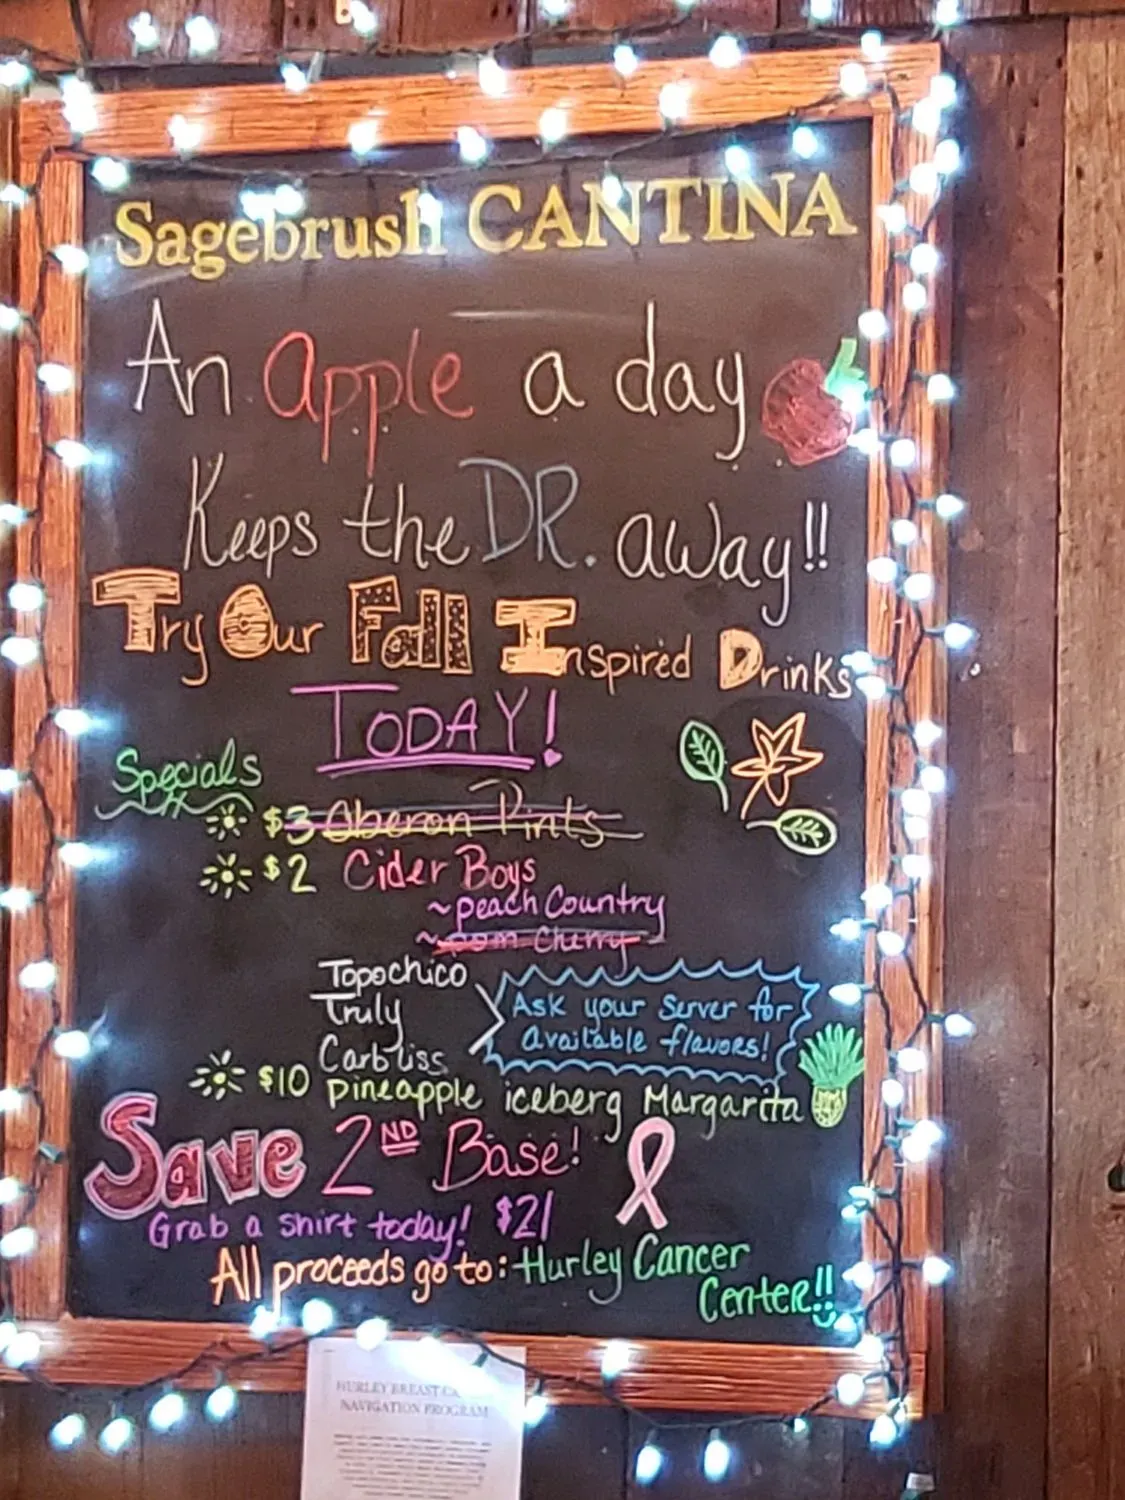 Sagebrush CANTINA
An apple a day
Keeps the DR. away!!
Try Our Fall Inspired Drinks
TODAY!
Specials
$3 Oberon Pints
$2 Cider Boys
~peach Country
~pom Cherry
Topochico
Truly
Carbliss
Ask your server for
available flavors!
$10 pineapple iceberg Margarita
Save 2ND Base!
Grab a shirt today! $21
All proceeds go to: Hurley Cancer
Center!!
HURLEY BREAST
NAVIGATION PROGRAM